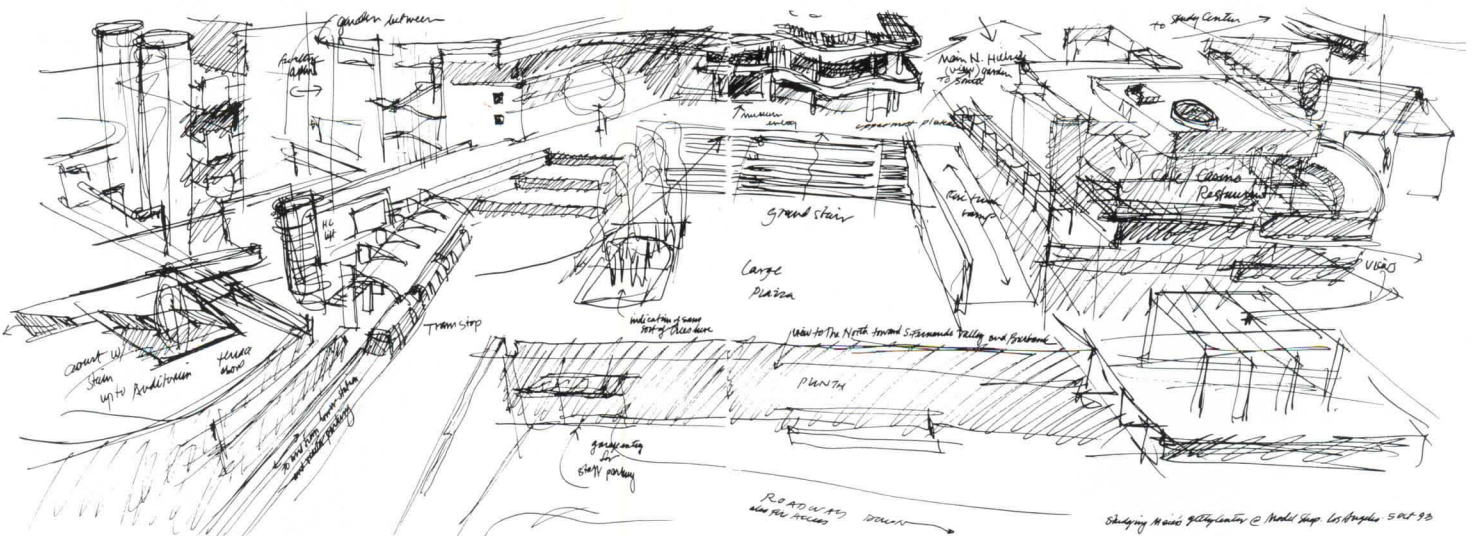 garden between
to Study Center
Main N. Hill
(view) garden
TO South
museum
entry
uppermost plaza
HC
lift
Grand Stair
ramp
Cafe Casino
Restaurant
Large
Plaza
VIEWS
Tram stop
indication of some
sort of trees here
View to The North toward S. Fernando Valley and Burbank
court w/
stair
up to Auditorium
terrace
above
PLINTH
to and from lower station
and public parking
garage entry
for
staff parking
ROADWAY DOWN
also FIR Access
Studying Meier's Getty Center @ Model Shop. Los Angeles. 5 Oct 93